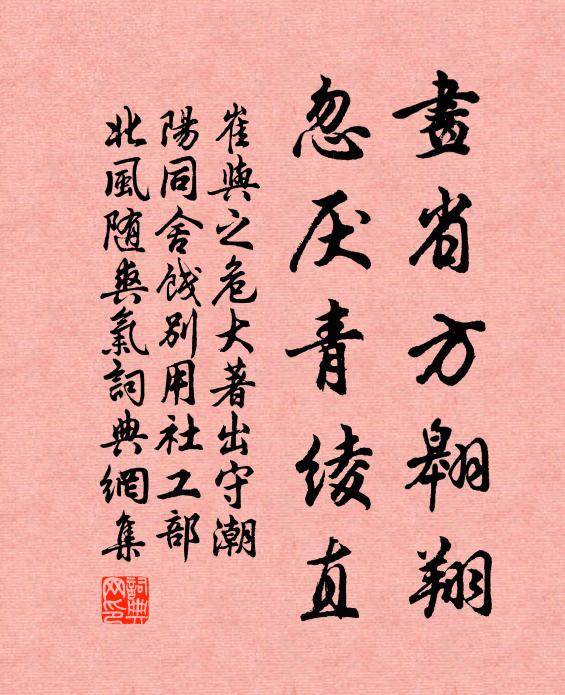 畫省方翱翔
忽厌青綾直
崔與之危大著出守潮
陽同舍餞別用社工部
北風随爽氣詞典網集
詞典
网印